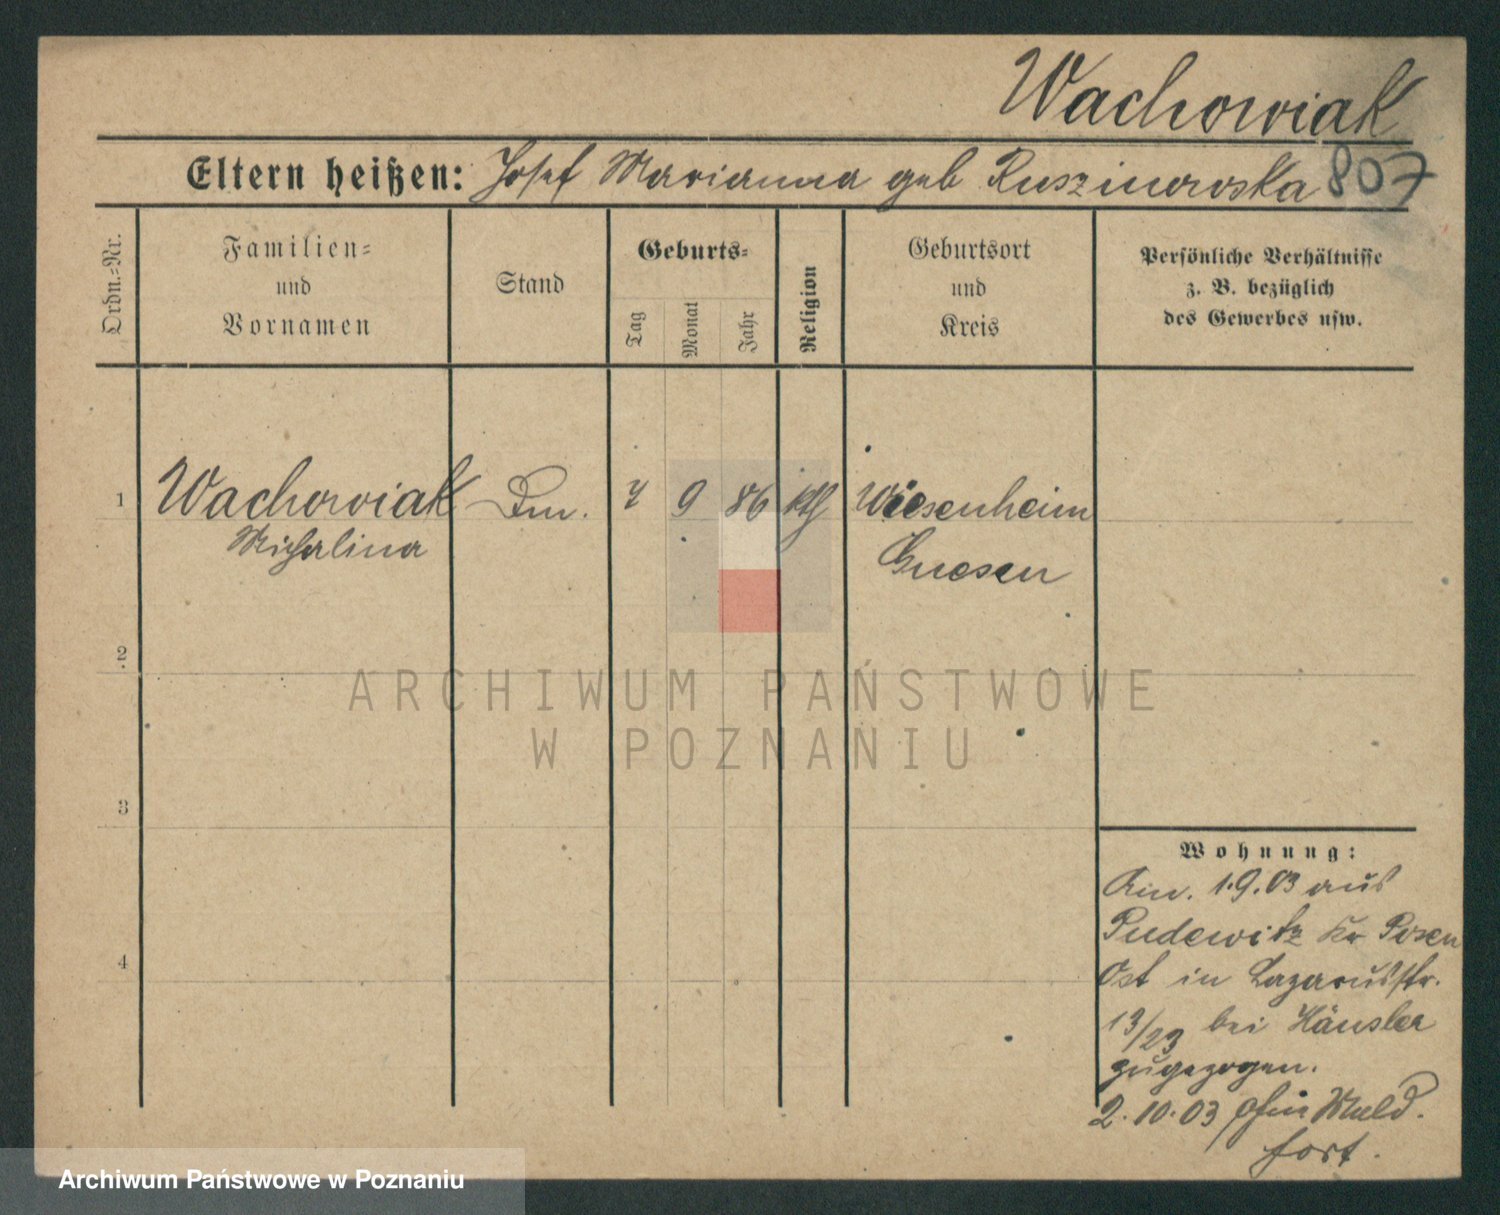 Wachowiak
Eltern heißen: Josef Marianna geb Ruszinowska 807
Ordn.-Nr.
Familien-
und
Vornamen
Stand
Geburts-
Tag
Monat
Jahr
Religion
Geburtsort
und
Kreis
Persönliche Verhältnisse
z. B. bezüglich
des Gewerbes usw.
1 Wachowiak Dm. 7 9 86 kth Wiesenheim
Michalina Gnesen
2
3
4
Wohnung:
Am. 1.9.03 aus
Pudewitz Kr Posen
Ost in Lazarusstr.
13/23 bei Häusler
zugezogen.
2.10.03 ohne Meld.
fort.
ARCHIWUM PAŃSTWOWE
W POZNANIU
Archiwum Państwowe w Poznaniu